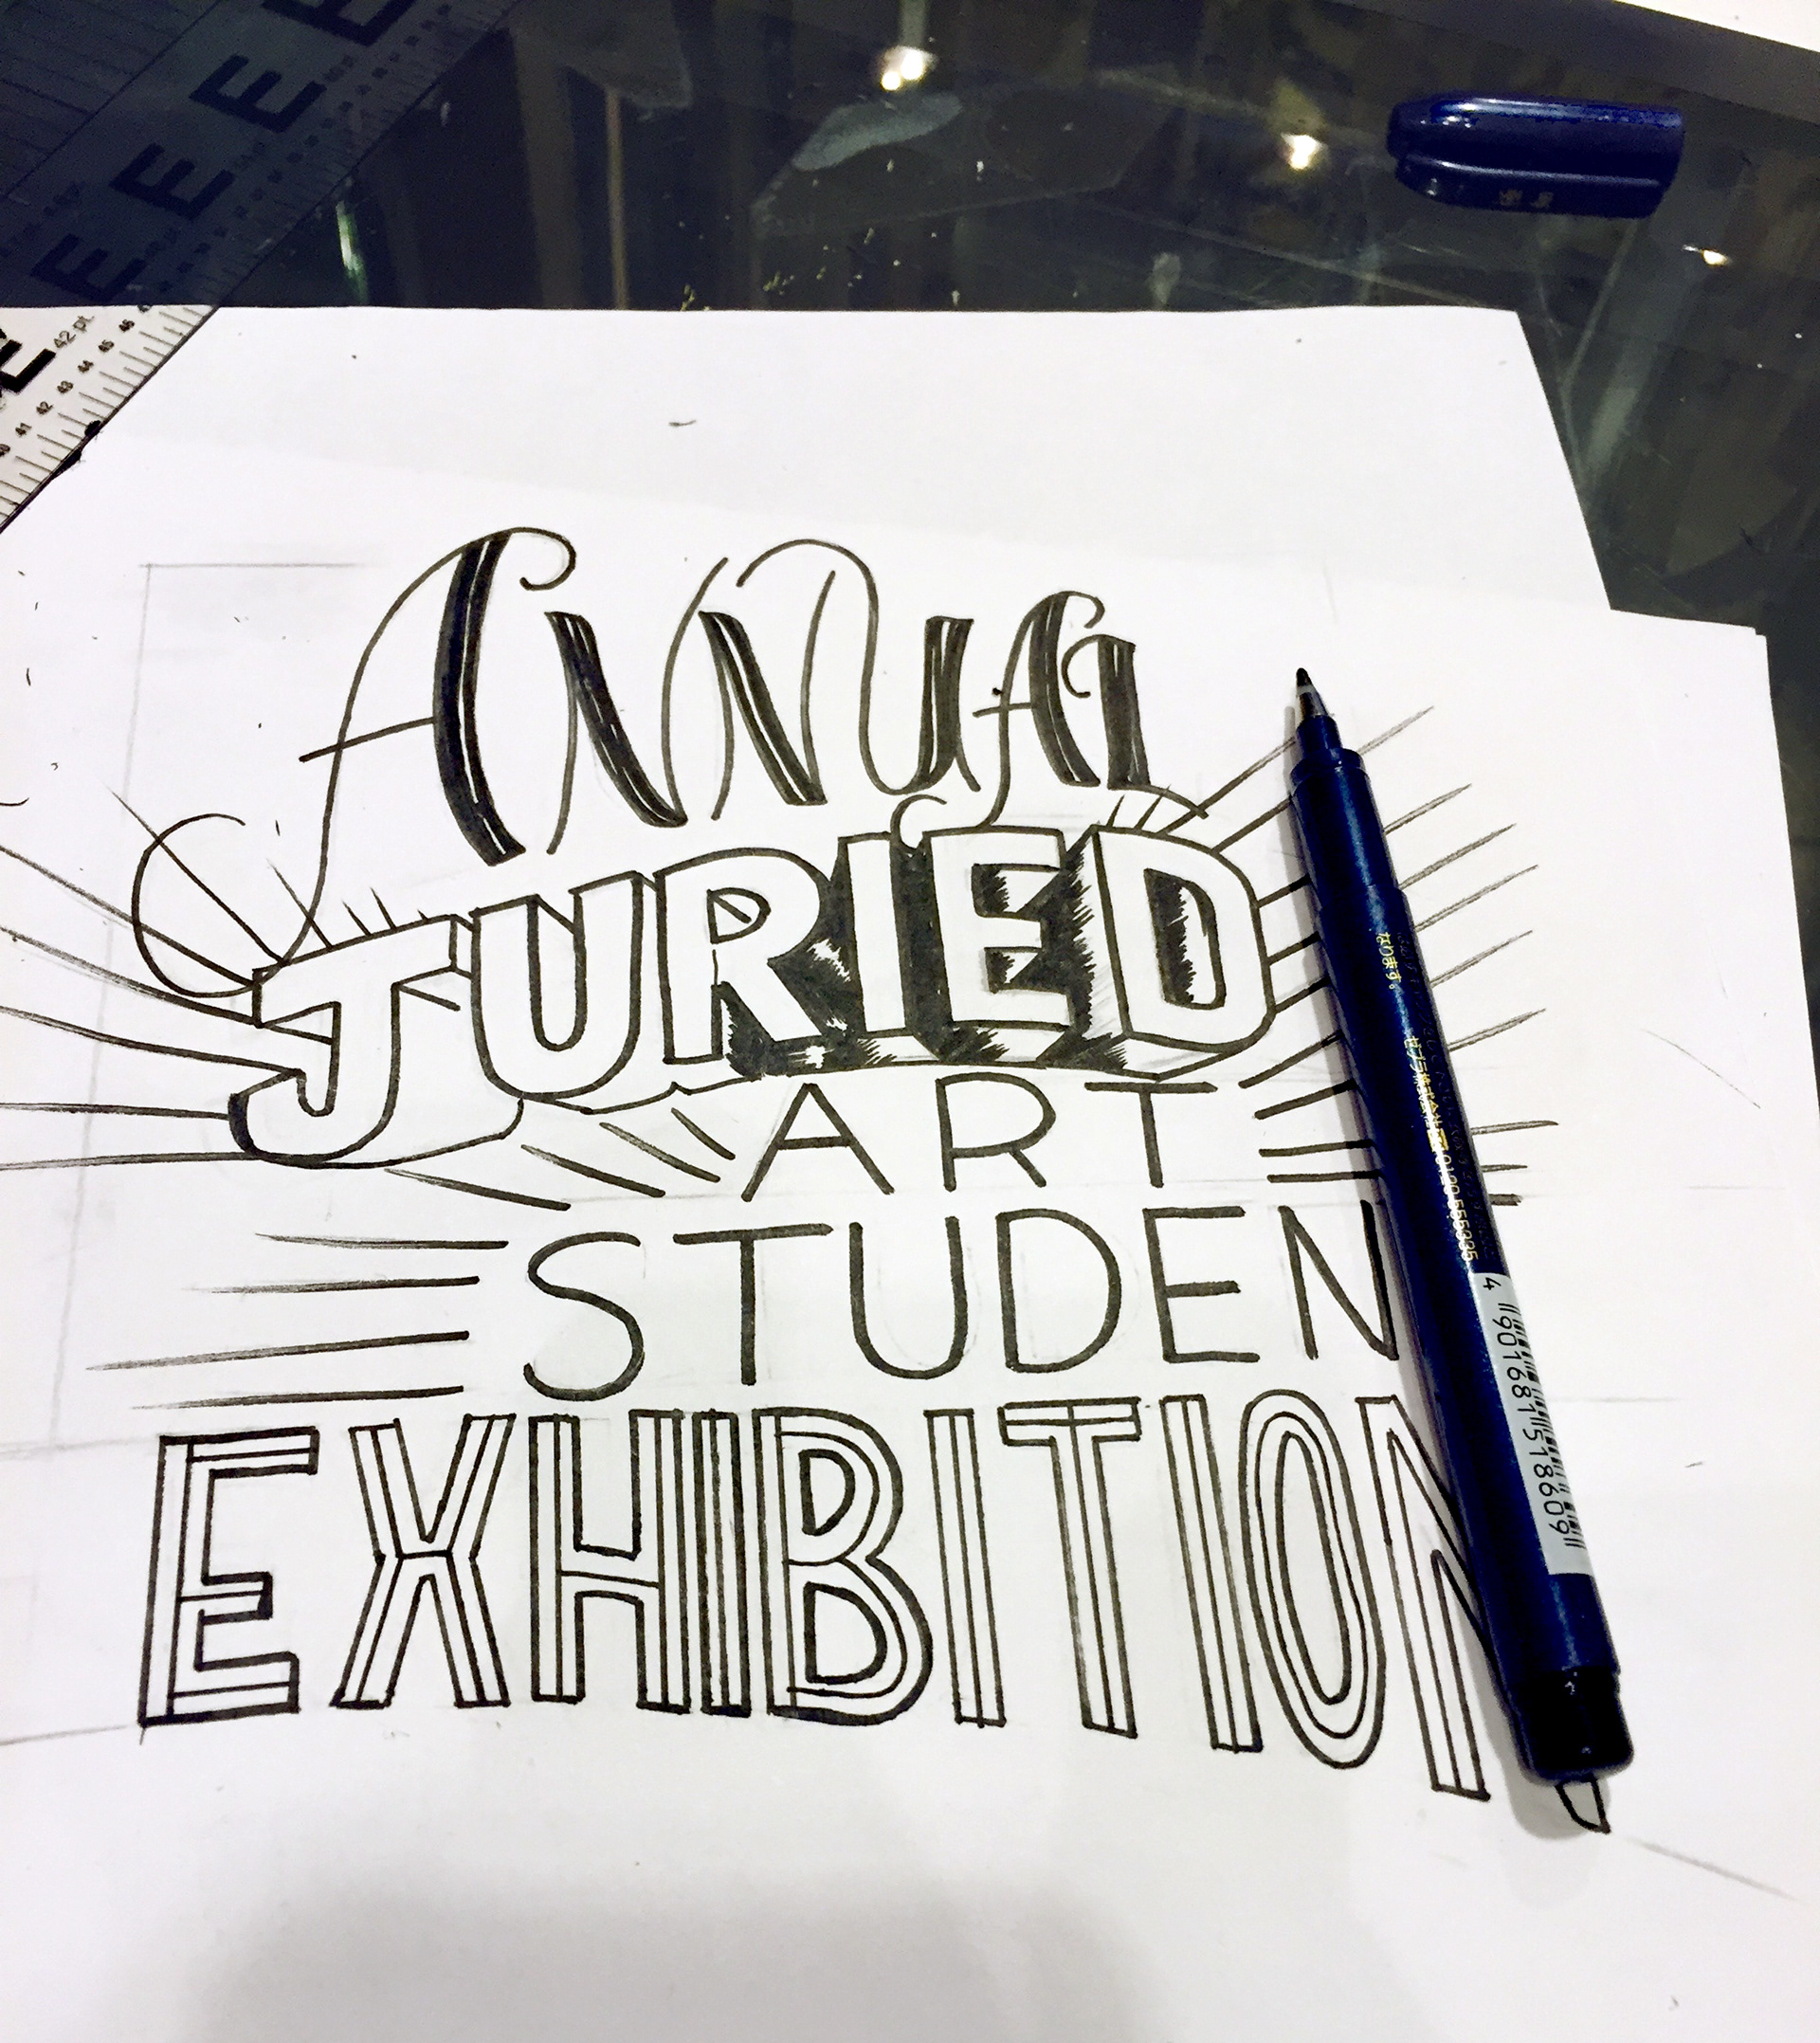 E E E E
E 42 pt.
46 45 44 43 42 41 40
ANNUAL
JURIED
ART
STUDEN
EXHIBITION
なります。
4 901681 518609